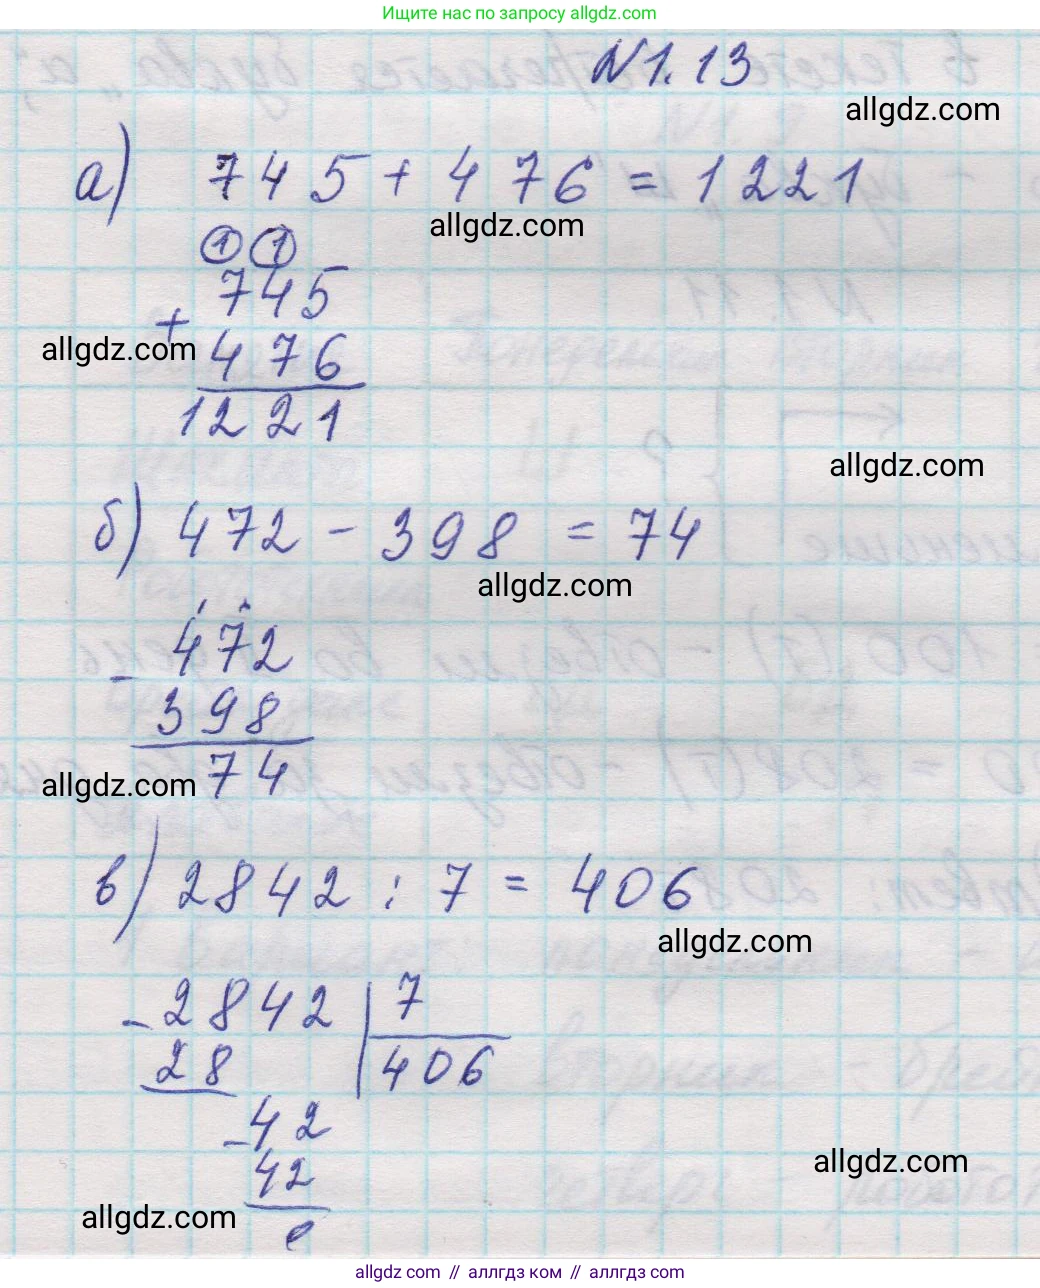 Ищите нас по запросу allgdz.com
N1.13
allgdz.com
а) 745 + 476 = 1221
allgdz.com
1 1
745
+
allgdz.com 476
1221
allgdz.com
б) 472 - 398 = 74
allgdz.com
472
-
398
allgdz.com 74
в) 2842 : 7 = 406
allgdz.com
- 2842 7
28 406
- 42
allgdz.com
42
allgdz.com
0
allgdz.com // аллгдз ком // allgdz.com